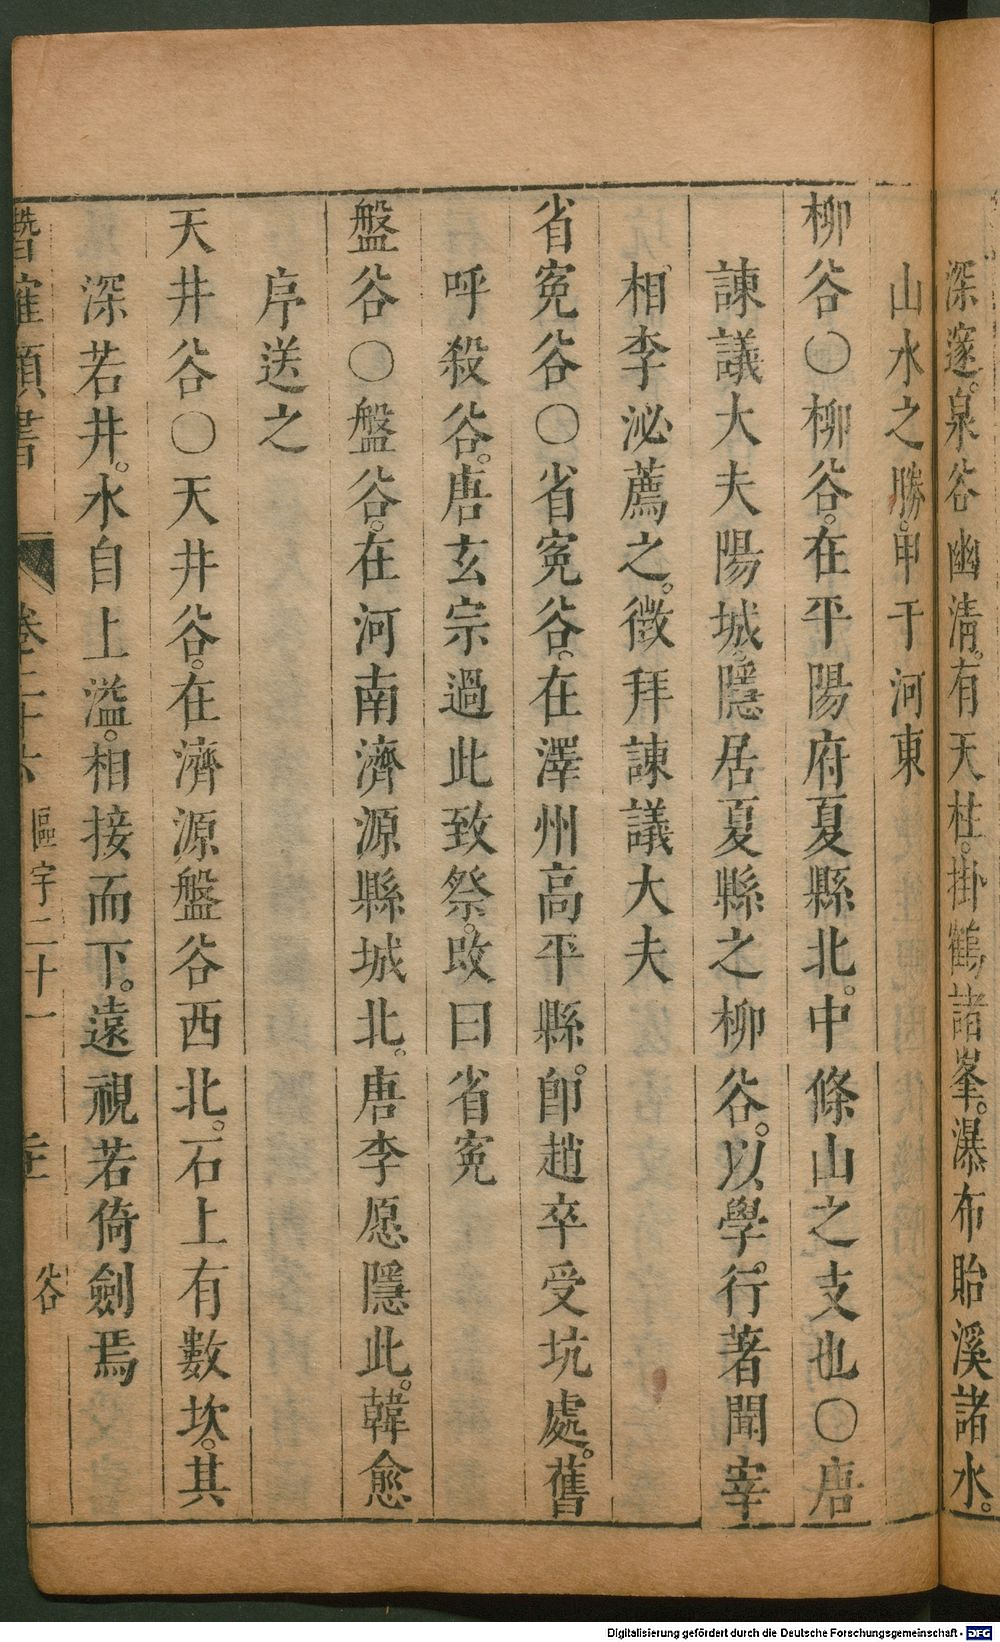 深邃。泉谷幽清。有天柱。掛鶴諸峯。瀑布貽溪諸水。
山水之勝。甲于河東
柳谷〇柳谷。在平陽府夏縣北。中條山之支也〇唐
諫議大夫陽城。隱居夏縣之柳谷。以學。行著聞宰
相李泌薦之。徵拜諫議大夫
省寃谷〇省寃谷。在澤州高平縣。卽趙卒受坑處。舊
呼殺谷。唐玄宗過此致祭。改曰省寃
盤谷〇盤谷。在河南濟源縣城北。唐李愿隱此。韓愈
序送之
天井谷〇天井谷。在濟源盤谷西北。石上有數坎。其
深若井。水自上溢。相接而下。遠視若倚劍焉
潛確類書 卷二十六 區宇二十一 谷
Digitalisierung gefördert durch die Deutsche Forschungsgemeinschaft - DFG